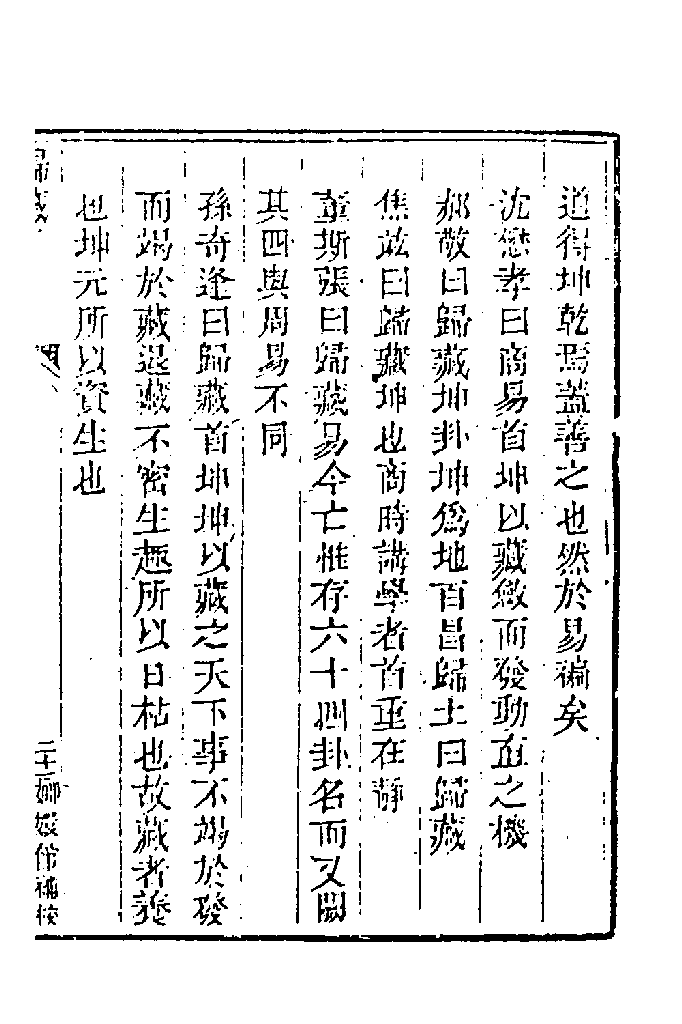 道得坤乾焉蓋善之也然於易徧矣
沈懋孝曰商易首坤以藏斂而發動直之機
郝敬曰歸藏坤卦坤爲地百昌歸土曰歸藏
焦竑曰歸藏坤也商時講學者首重在靜
董斯張曰歸藏易今亡惟存六十四卦名而又闕
其四與周易不同
孫奇逢曰歸藏首坤坤以藏之天下事不竭於發
而竭於藏退藏不密生趣所以日枯也故藏者養
也坤元所以資生也
歸藏
二十二嫏嬛館補校